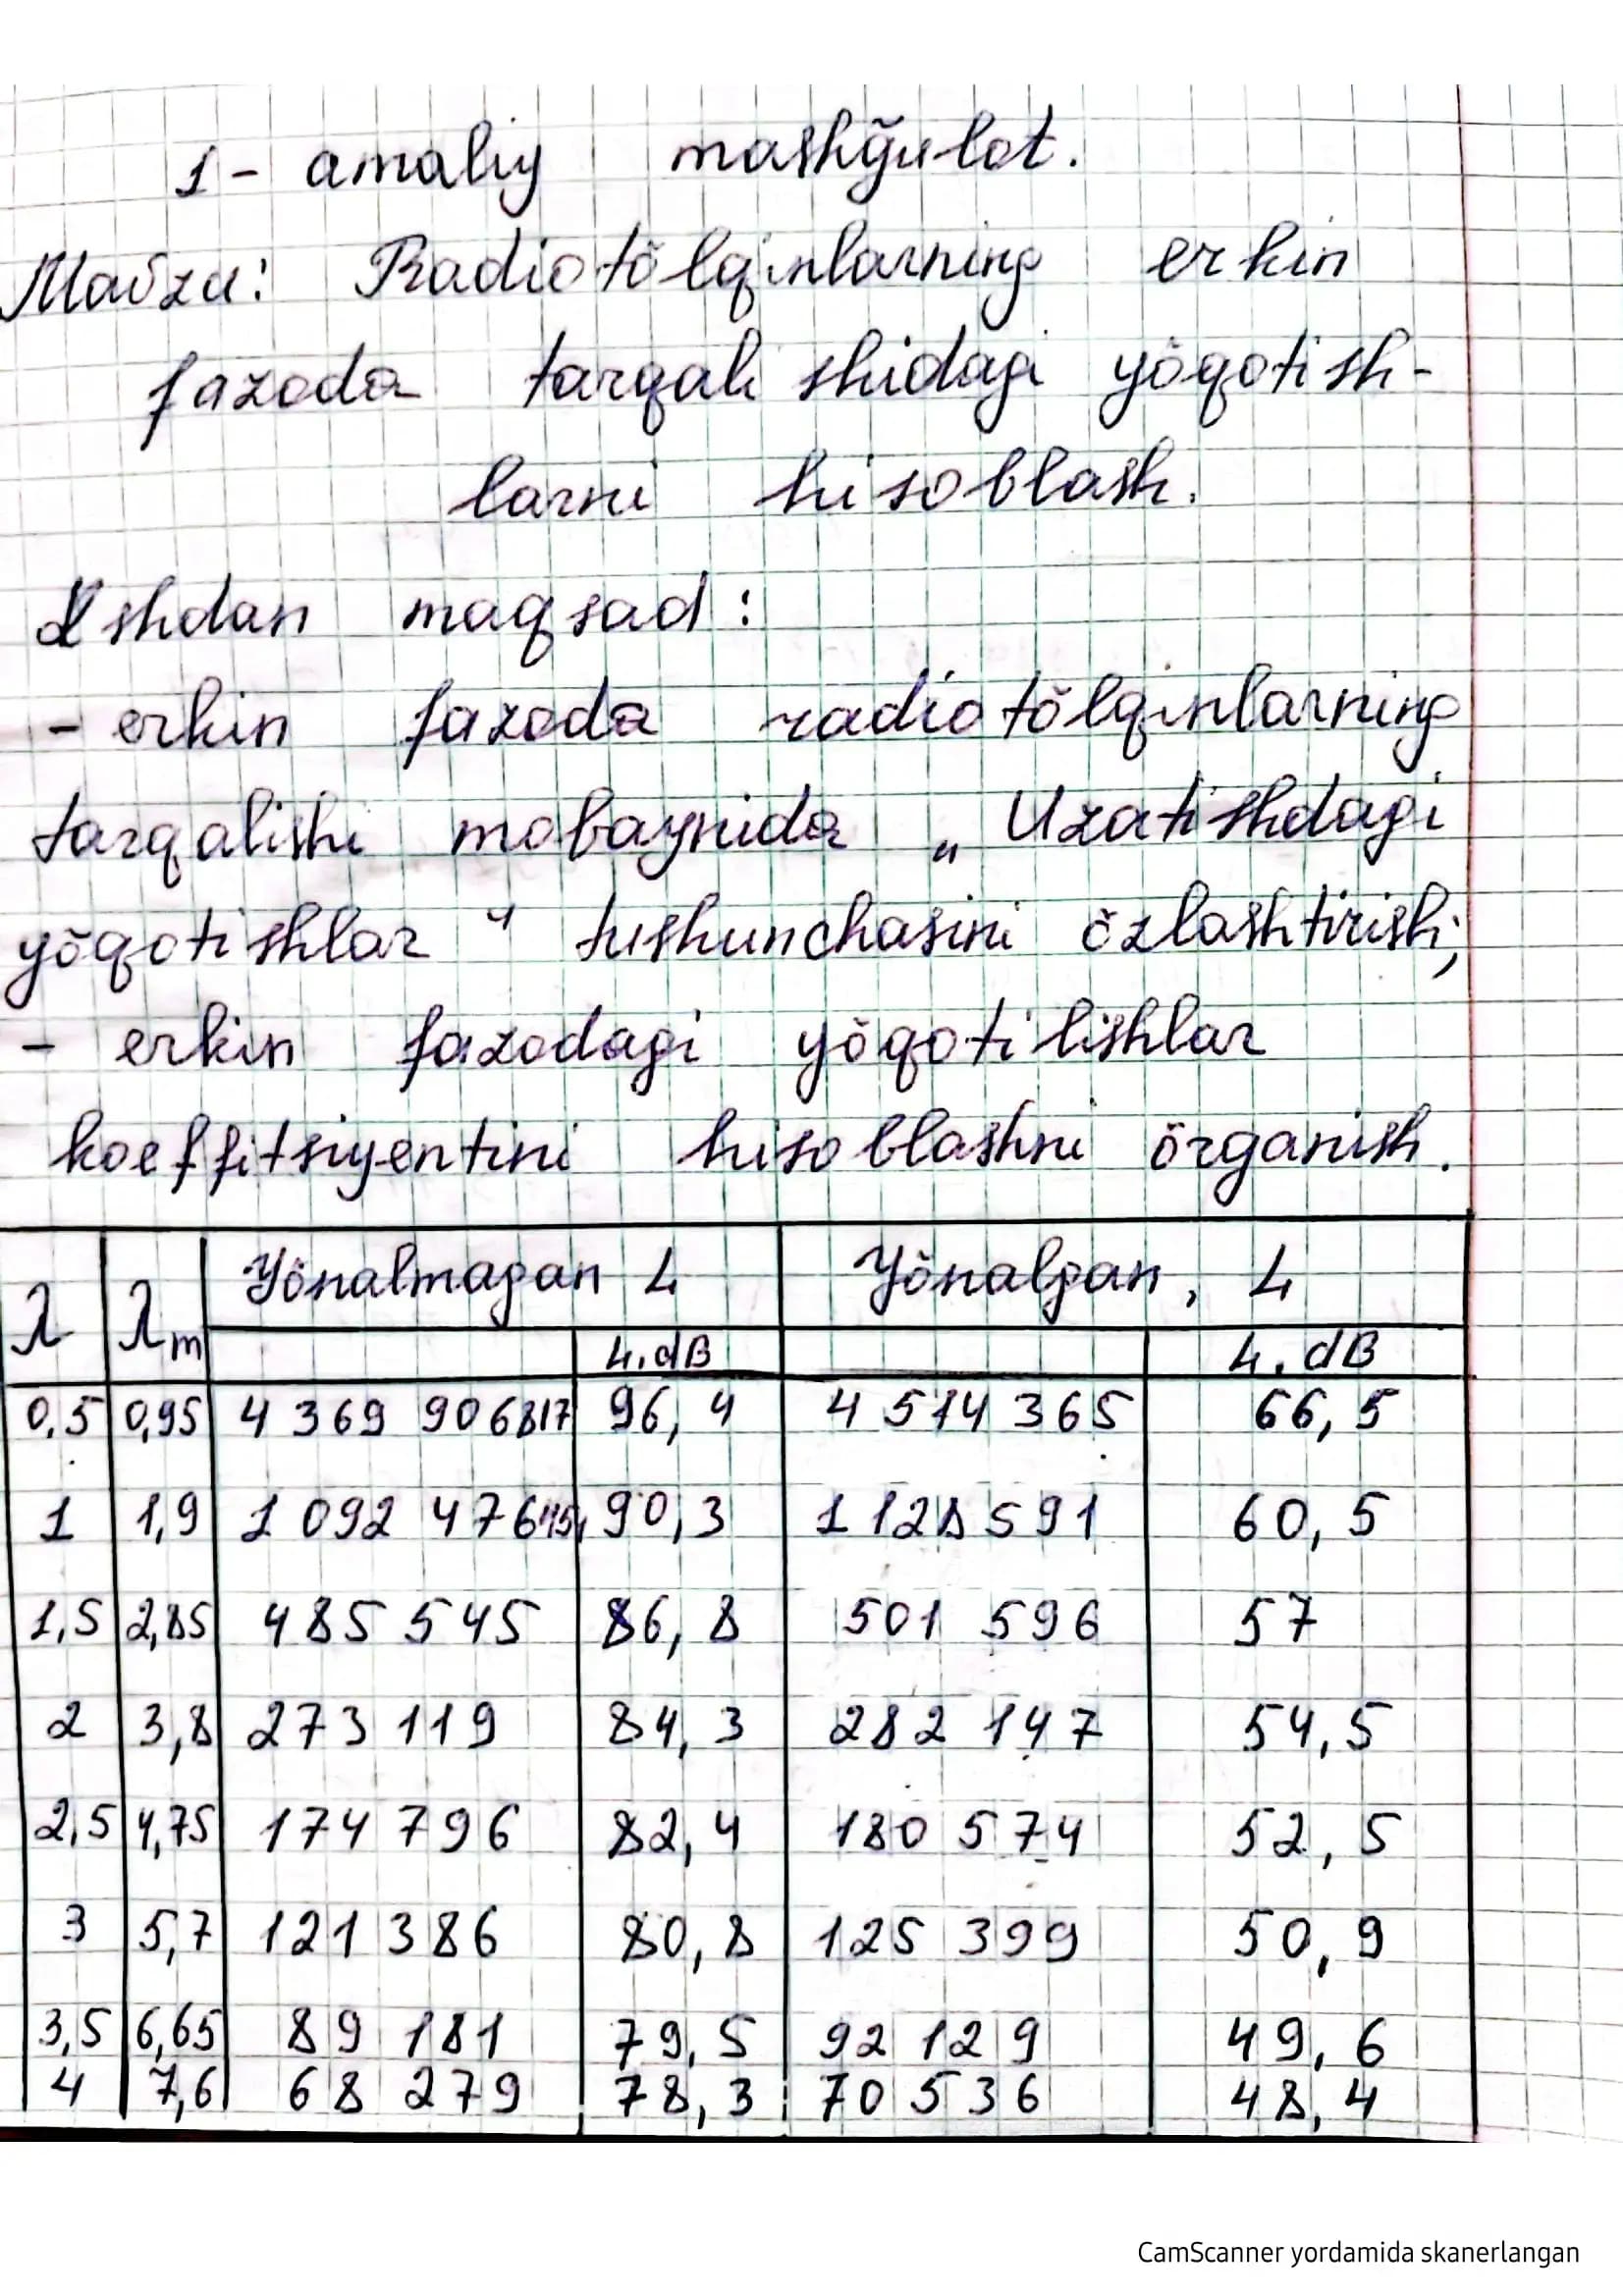 1- amaliy mashğulot.
Mavzu: Radiotõlqinlarning erkin
fazoda tarqalishidagi yõqotish-
larni hisoblash.
Ishdan maqsad:
- erkin fazoda radiotõlqinlarning
tarqalishi mobaynida „Uzatishdagi
yõqotishlar“ tushunchasini õzlashtirish;
- erkin fazodagi yõqotilishlar
koeffitsiyentini hisoblashni õrganish.
λ λm Yõnalmagan L Yõnalgan, L
L.dB L.dB
0,5 0,95 4 369 906817 96,4 4 514 365 66,5
1 1,9 1 092 476 90,3 1 128 591 60,5
1,5 2,85 485 545 86,8 501 596 57
2 3,8 273 119 84,3 282 147 54,5
2,5 4,75 174 796 82,4 180 574 52,5
3 5,7 121 386 80,8 125 399 50,9
3,5 6,65 89 181 79,5 92 129 49,6
4 7,6 68 279 78,3 70 536 48,4
CamScanner yordamida skanerlangan